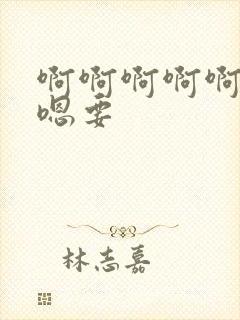 啊啊啊啊啊
嗯要
林志嘉